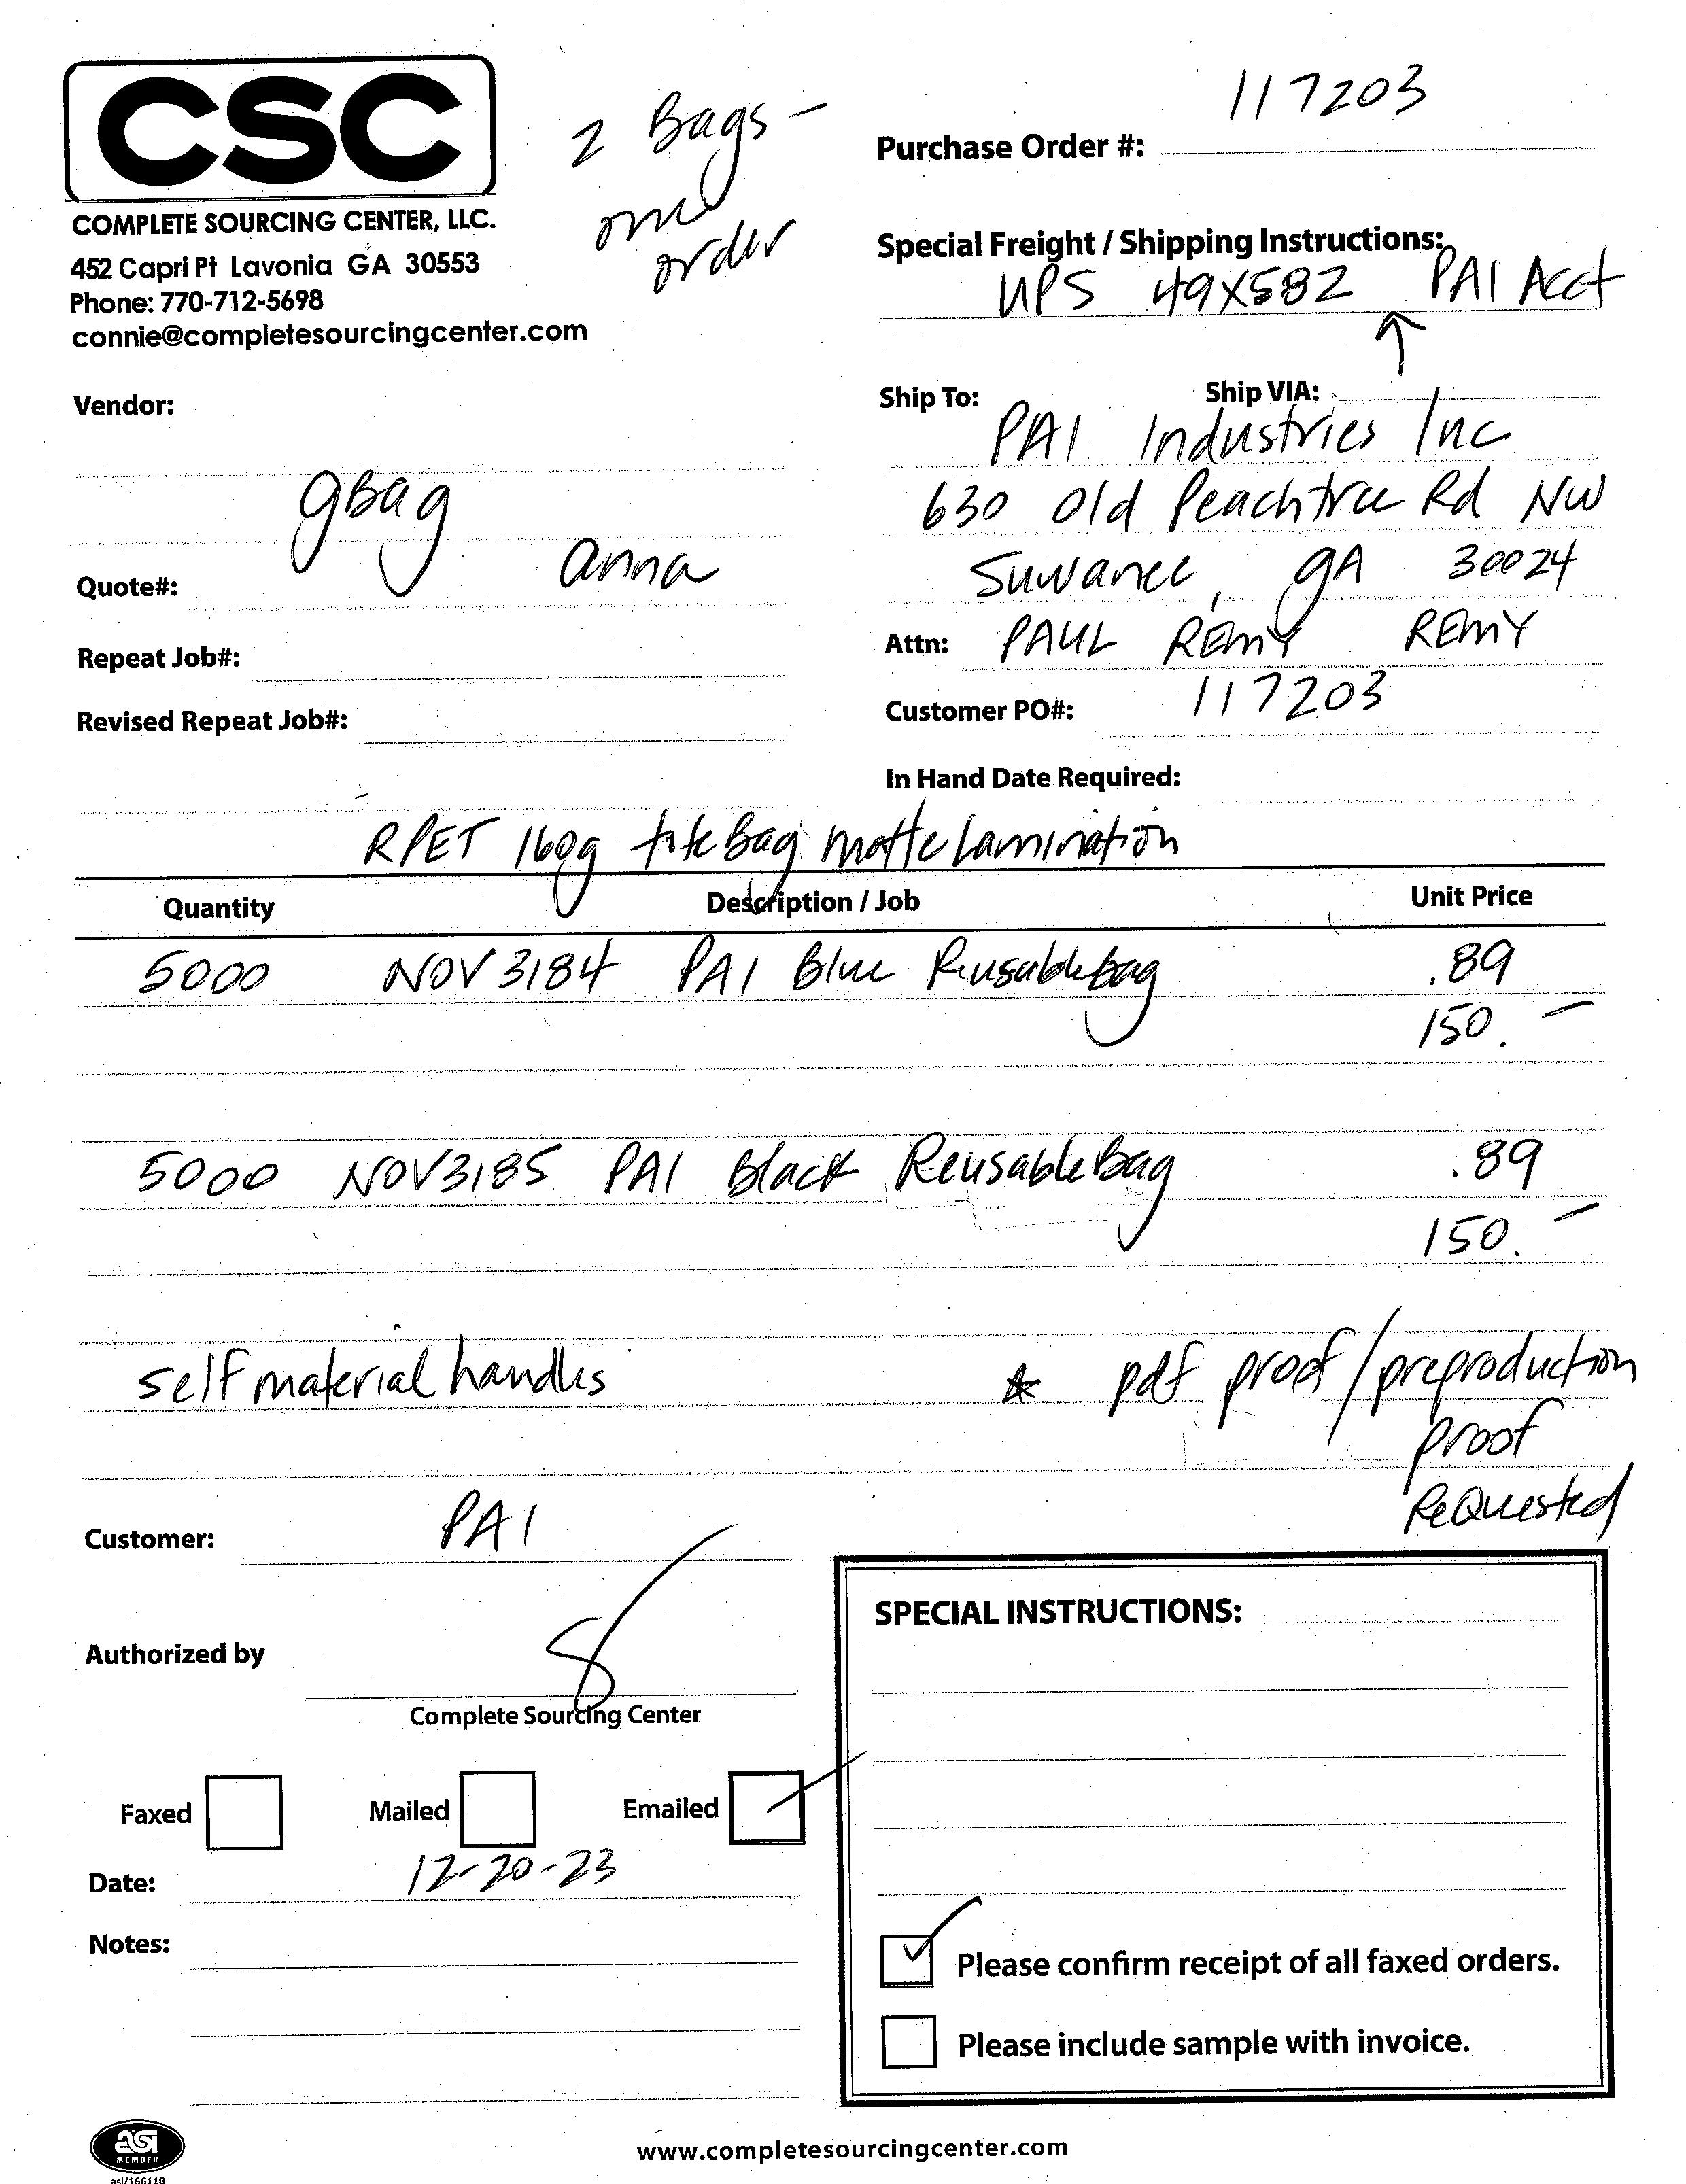 CSC
COMPLETE SOURCING CENTER, LLC.
452 Capri Pt Lavonia GA 30553
Phone: 770-712-5698
connie@completesourcingcenter.com
2 Bags -
one
order
Purchase Order #: 117203
Special Freight / Shipping Instructions:
UPS 49X582 PAI Acct
Vendor:
gBag
anna
Quote#:
Repeat Job#:
Revised Repeat Job#:
Ship To: Ship VIA:
PAI Industries Inc
630 Old Peachtree Rd NW
Suwanee, GA 30024
Attn: PAUL REMY REMY
Customer PO#: 117203
In Hand Date Required:
RPET 160g tote Bag matte Lamination
Quantity Description / Job Unit Price
5000 NOV3184 PAI Blue Reusable bag .89
150. -
5000 NOV3185 PAI Black Reusable Bag .89
150. -
self material handles
* pdf proof / preproduction
proof
ReQuested
Customer: PAI
Authorized by
Complete Sourcing Center
Faxed Mailed Emailed
Date: 12-20-23
Notes:
SPECIAL INSTRUCTIONS:
Please confirm receipt of all faxed orders.
Please include sample with invoice.
asi
MEMBER
asi/166118
www.completesourcingcenter.com